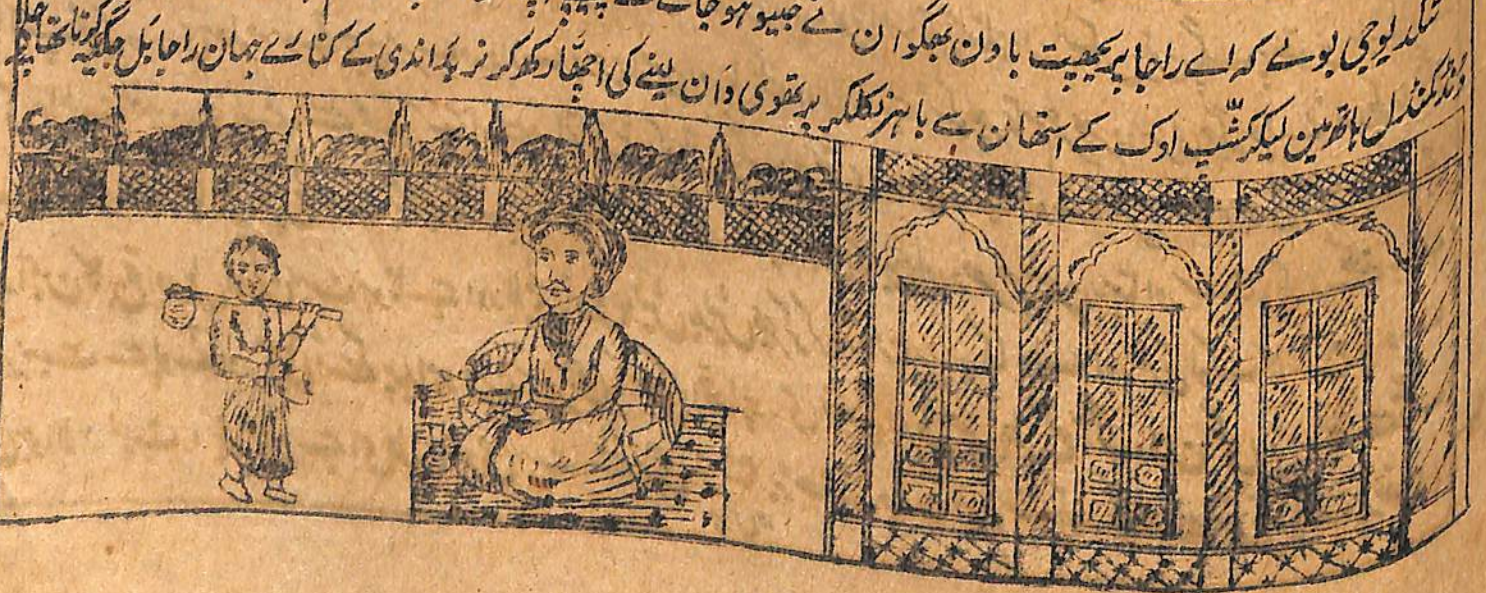 سکدیوجی بولے کہ اے راجا پریچھت باون بھگوان نے جنیو ہو جانے کے پیچھے
ڈنڈ کمنڈل ہاتھ مین لیکر کشّپ اوک کے استھان سے باہر نکلکر پرتھوی دان لینے کی اچھّا رکھکر نربداندی کے کنارے جہان راجا بل جگیہ کرتا تھا چلے